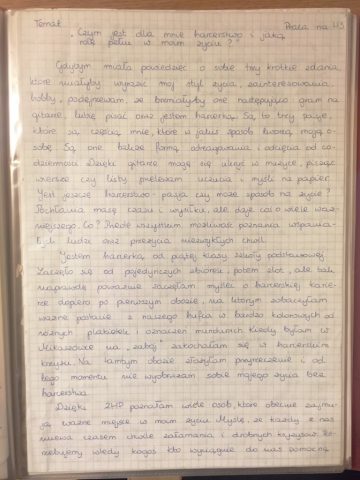 Temat Praca na 4/3
"Czym jest dla mnie harcerstwo i jaką
rolę pełni w moim życiu?"
Gdybym miała powiedzieć o sobie trzy krótkie zdania,
które miałyby wyrazić mój styl życia, zainteresowania,
hobby, podejrzewam, że brzmiałyby one następująco: gram na
gitarze, lubię pisać oraz jestem harcerką. Są to trzy pasje,
które są częścią mnie, które w jakiś sposób tworzą moją o-
sobę. Są one także formą odreagowania i odcięcia od co-
dzienności. Dzięki gitarze mogę się ukryć w muzyce, pisząc
wiersze czy listy przelewam uczucia i myśli na papier.
Jest jeszcze harcerstwo - pasja czy może sposób na życie?
Pochłania masę czasu i wysiłku, ale daje coś o wiele waż-
niejszego. Co? Przede wszystkim możliwość poznania wspania-
łych ludzi oraz przeżycia niezwykłych chwil.
Jestem harcerką od piątej klasy szkoły podstawowej.
Zaczęło się od pojedynczych zbiórek, potem zlot, ale tak
naprawdę poważnie zaczęłam myśleć o harcerskiej karie-
rze dopiero po pierwszym obozie, na którym zobaczyłam
ważne postacie z naszego hufca w bardzo kolorowych od
różnych plakietek i oznaczeń mundurach. Kiedy byłam w
zakochałam się w harcerskim
kręgu. Na tamtym obozie złożyłam przyrzeczenie i od
tego momentu nie wyobrażam sobie mojego życia bez
harcerstwa.
Dzięki ZHP poznałam wiele osób, które obecnie zajmu-
ją ważne miejsce w moim życiu. Myślę, że każdy z nas
miewa czasem chwile załamania i drobnych kryzysów. Po-
trzebujemy wtedy kogoś kto wyciągnie do nas pomocną